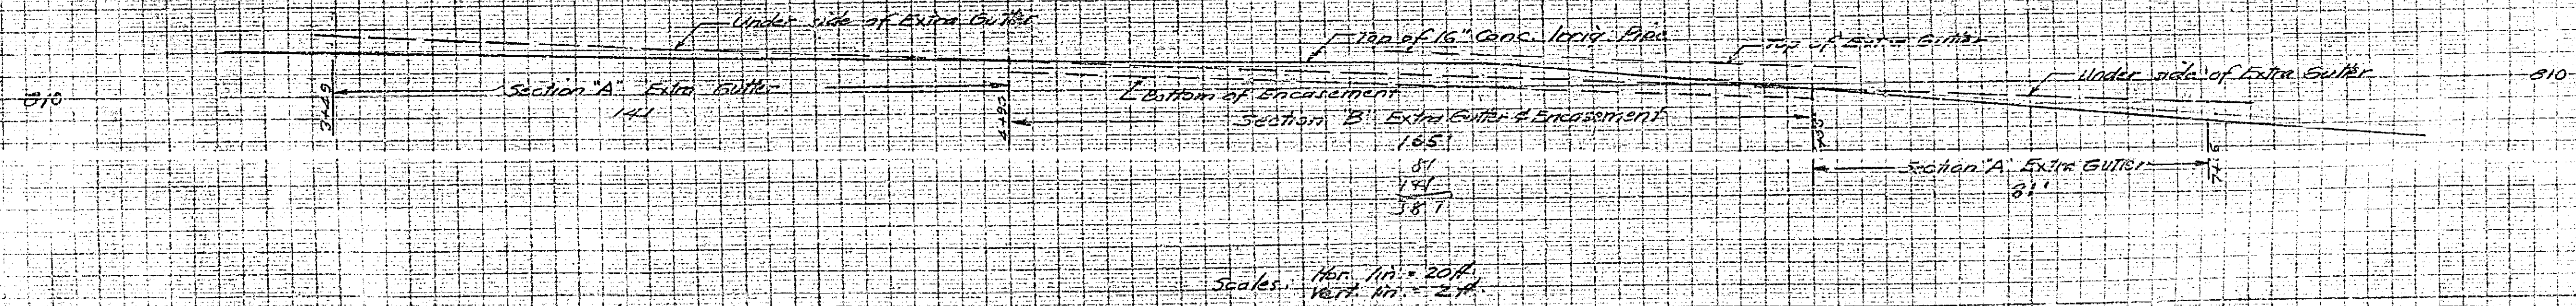 Under side of Extra Gutter
Top of 16" Conc. Irrig. Pipe
Top of Extra Gutter
Under side of Extra Gutter
810
810
3+49
Section "A" Extra Gutter
141
4+90
Bottom of Encasement
Section "B" Extra Gutter & Encasement
165'
81
141
387
Section "A" Extra Gutter
81'
Scales: Hor. 1in. = 20ft.
Vert. 1in. = 2ft.